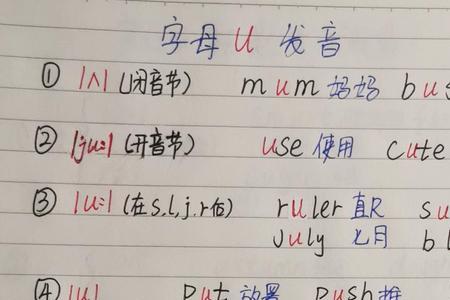 字母 u 发音
① /ʌ/ (闭音节) mum 妈妈 bus
② /juː/ (开音节) use 使用 cute
③ /uː/ (在s,l,j,r后) ruler 直尺 su
July 七月 bl
④ /u/ put 放置 push 推